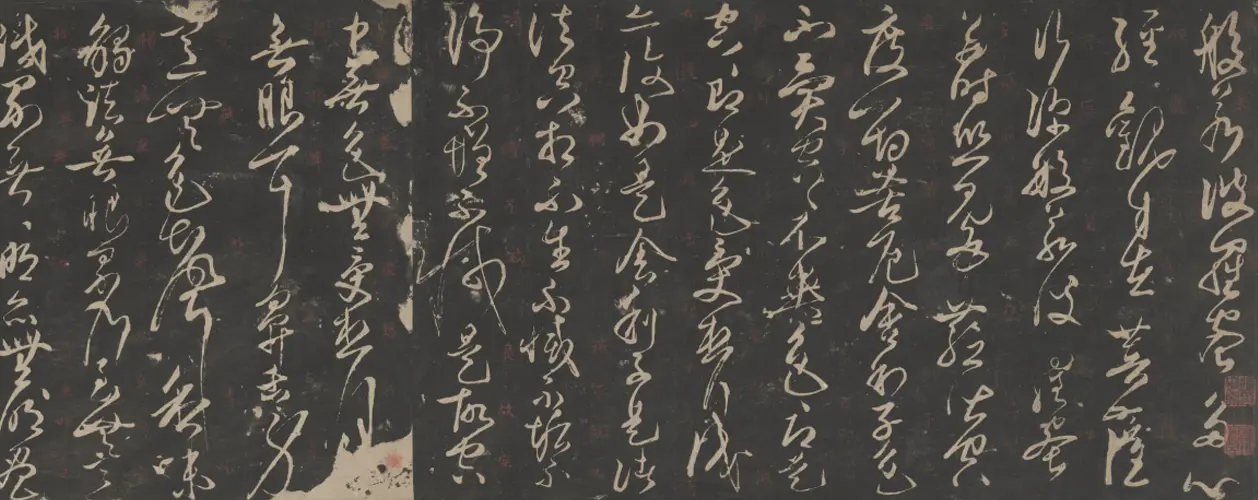 般若波羅蜜多心
經觀自在菩薩
行深般若波羅蜜
多時照見五蘊皆空
度一切苦厄舍利子色
不異空〻不異色〻即是
空〻即是色受想行識
亦復如是舍利子是諸
法空相不生不滅不垢不
淨不增不減是故空
中無色無受想行
無眼耳鼻舌身
意無色聲香味
觸法無眼界乃至無意
識界無〻明亦無無明盡